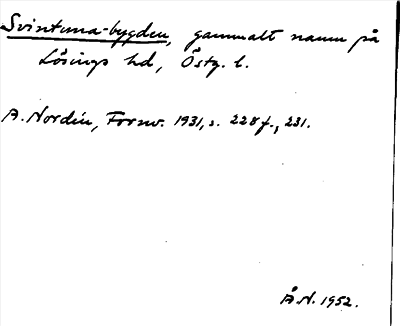 Svintuna-bygden, gammalt namn på
Lösings hd, Östg. l.
A. Nordin, Fornv. 1931, s. 228 f., 231.
Å.N. 1952.